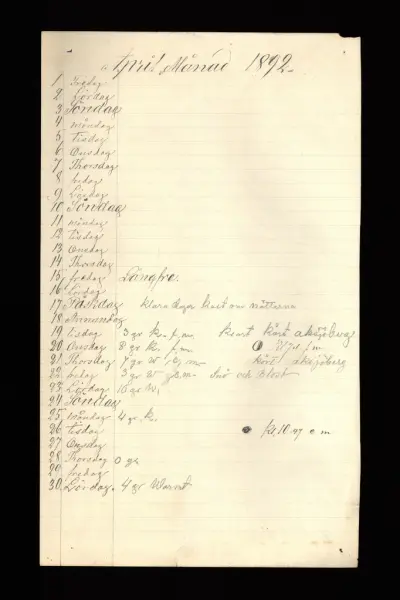 April Månad 1892.
1 Fredag
2 Lördag
3 Söndag
4 Måndag
5 Tisdag
6 Onsdag
7 Thorsdag
8 fredag
9 Lördag
10 Söndag
11 Måndag
12 Tisdag
13 Onsdag
14 Thorsdag
15 fredag Långfre.
16 Lördag
17 Påskdag klara dagar kalt om nätterna
18 Annandag
19 Tisdag 3 gr K. f. m.
20 Onsdag 8 gr K. f. m
21 Thorsdag 7 gr W f. m
22 fredag 3 gr W f. m. Snö och blåst
23 Lördag 16 gr W.
24 Söndag
25 Måndag 4 gr K.
26 Tisdag kl. 10.47 e m
27 Onsdag
28 Thorsdag 0 gr
29 fredag
30 Lördag. 4 gr Warmt